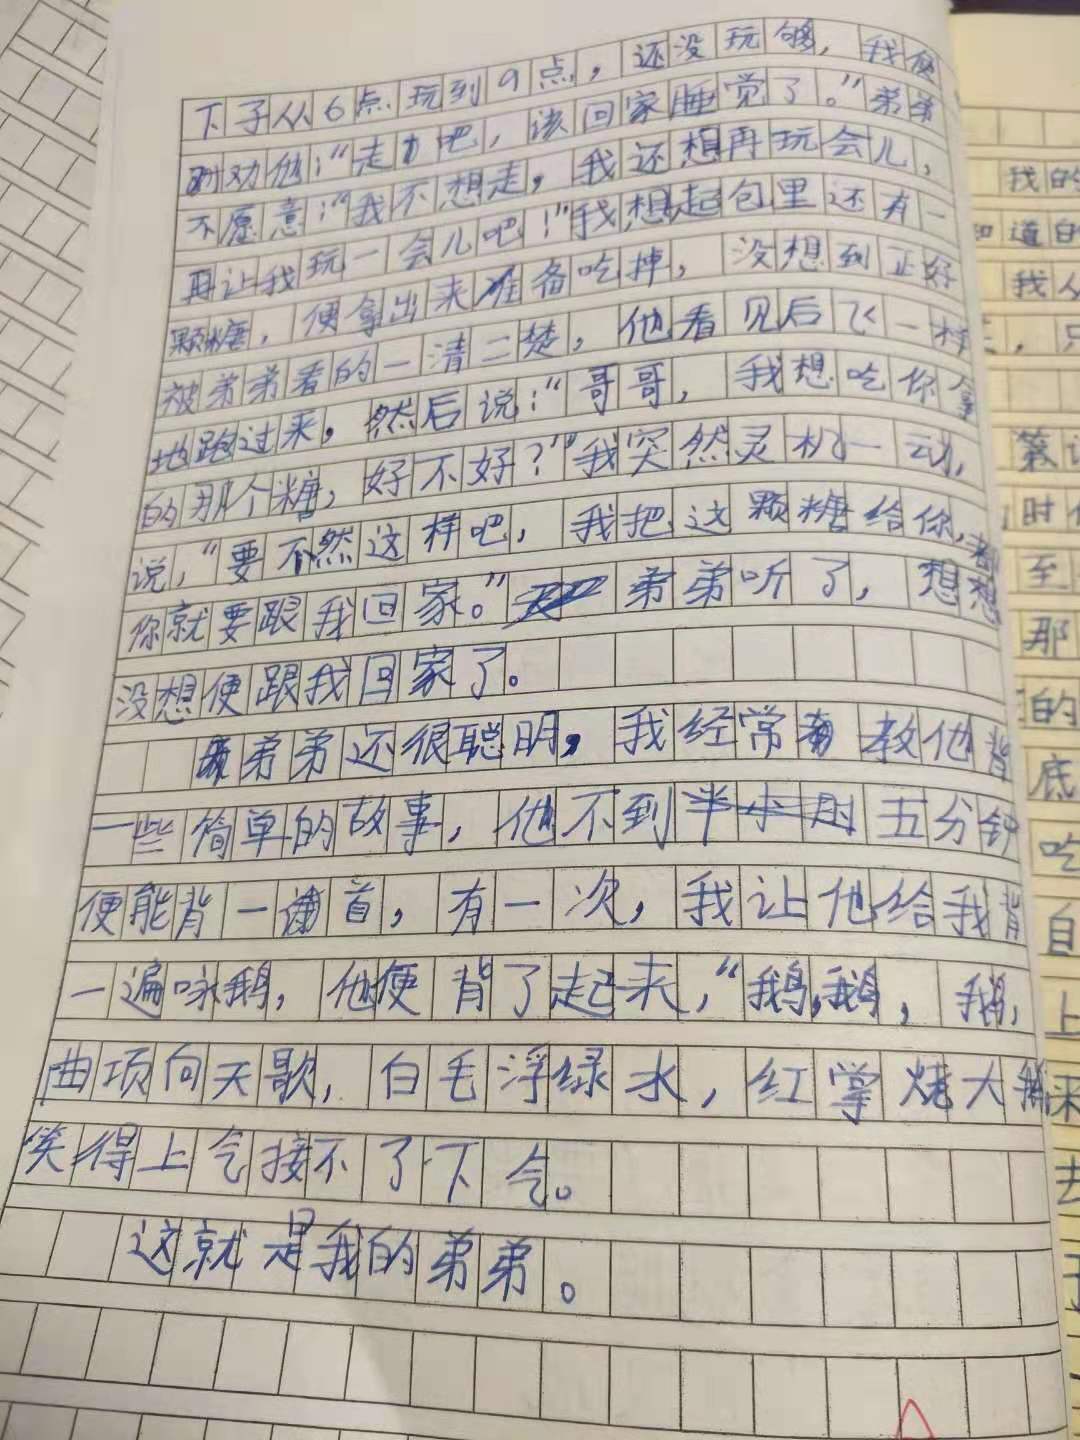 下子从6点玩到9点，还没玩够，我便
劝他："走吧，该回家睡觉了。"弟弟
不愿意："我不想走，我还想再玩会儿，
再让我玩一会儿吧！"我想起包里还有一
颗糖，便拿出来准备吃掉，没想到正好
被弟弟看的一清二楚，他看见后飞一样
地跑过来，然后说："哥哥，我想吃你拿
的那个糖，好不好？"我突然灵机一动，
说，"要不然这样吧，我把这颗糖给你，
你就要跟我回家。"弟弟听了，想想
没想便跟我回家了。
弟弟还很聪明，我经常教他背
一些简单的故事，他不到半小时五分钟
便能背一首，有一次，我让他给我背
一遍咏鹅，他便背了起来，"鹅，鹅，鹅，
曲项向天歌，白毛浮绿水，红掌烧大鹅
笑得上气接不了下气。
这就是我的弟弟。
我的
知道自
我从
，只
时
至
那
的
底
吃
自
上
来
去